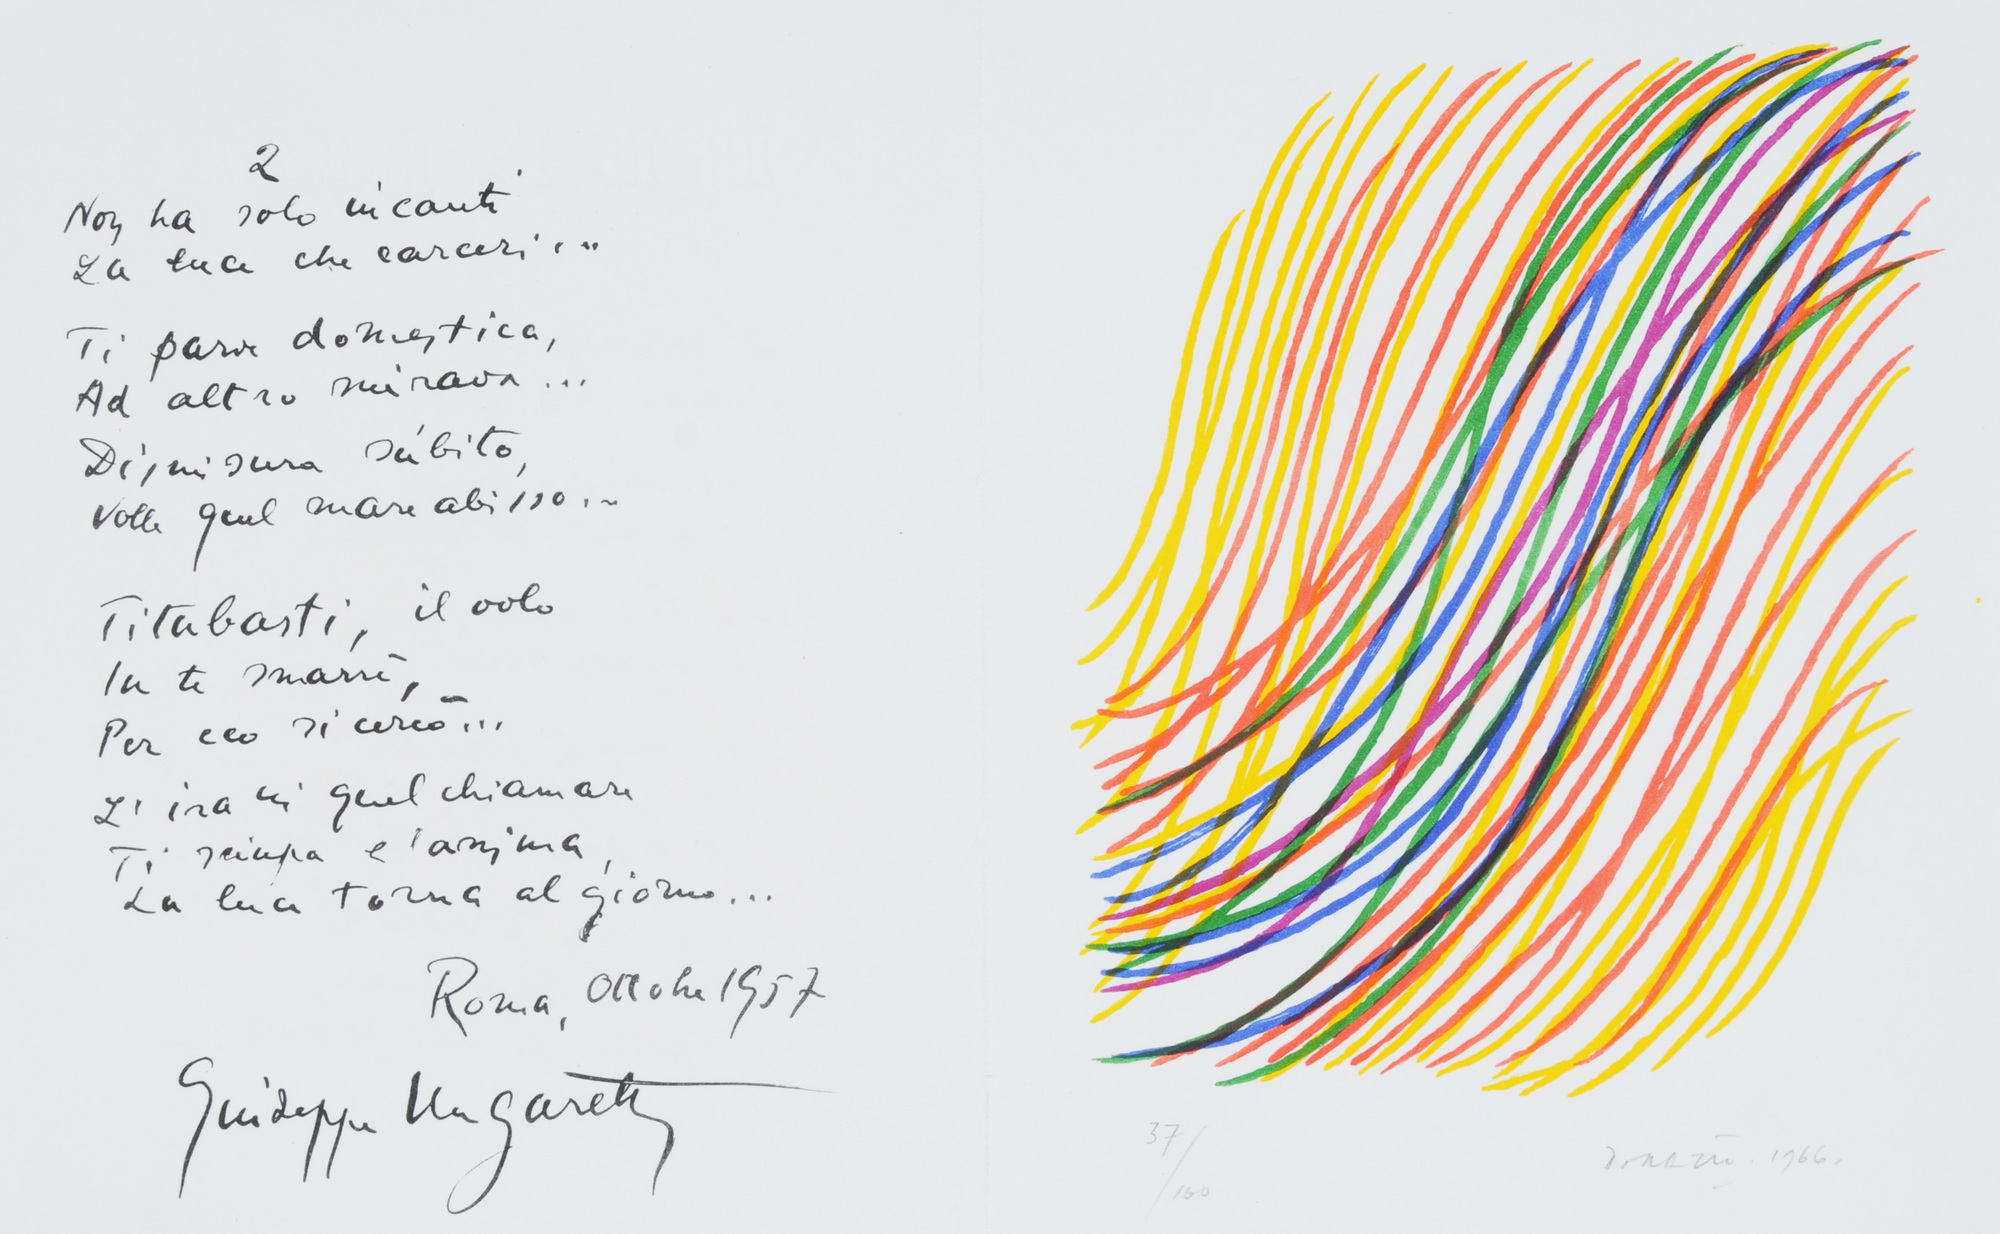 2
Non ha solo incanti
La luce che carceri...
Ti parve domestica,
Ad altro mirava...
Dismisura sùbito,
Volle quel mare abisso...
Titubasti, il volo
In te smarrì,
Per eco si cercò...
L'ira in quel chiamare
Ti sciupa e l'anima,
La luce torna al giorno...
Roma, Ottobre 1957
Giuseppe Ungaretti
37/160
DORAZIO. 1966.